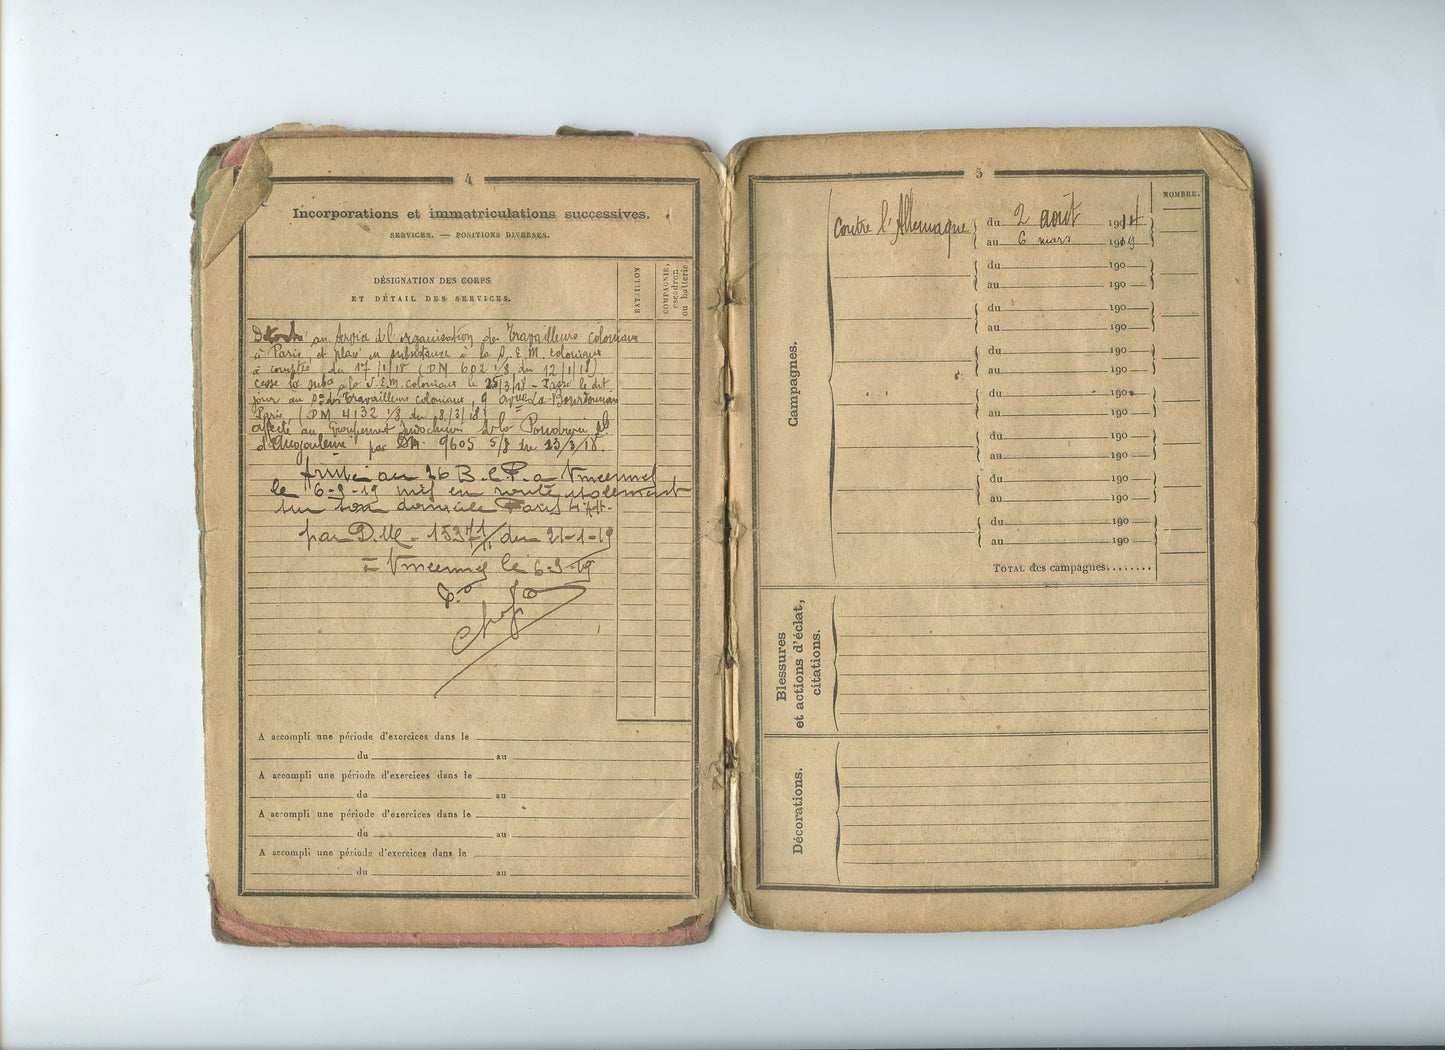 4
Incorporations et immatriculations successives.
SERVICES. — POSITIONS DIVERSES.
DÉSIGNATION DES CORPS
ET DÉTAIL DES SERVICES.
BATAILLON
COMPAGNIE,
escadron
ou batterie.
Détaché au Service de l'organisation des Travailleurs coloniaux
à Paris, et placé en subsistance à la S. E. M. coloniaux
à compter du 17/1/18 (DM 602 1/8 du 12/1/18).
cesse la subce à la S.E.M. coloniaux le 25/3/18 - Passé le dit
jour au Sce des Travailleurs coloniaux, 9 Avenue de la Bourdonnais
Paris (DM 4132 1/8 du 8/3/18)
affecté au Groupement Indochinois de la Poudrerie
d'Angoulême par DM. 9605 5/8 du 23/3/18.
Arrivé au 26 B.C.P. a Vincennes
le 6-3-19 mis en route isolement
sur son domicile Paris
par D.M. 15371/11 du 21-1-19
Vincennes le 6-3-19
A accompli une période d'exercices dans le
du au
A accompli une période d'exercices dans le
du au
A accompli une période d'exercices dans le
du au
A accompli une période d'exercices dans le
du au
5
NOMBRE.
Campagnes.
Contre l'Allemagne
du 2 août 1914
au 6 mars 1919
du 190
au 190
du 190
au 190
du 190
au 190
du 190
au 190
du 190
au 190
du 190
au 190
du 190
au 190
TOTAL des campagnes........
Blessures
et actions d'éclat,
citations.
Décorations.